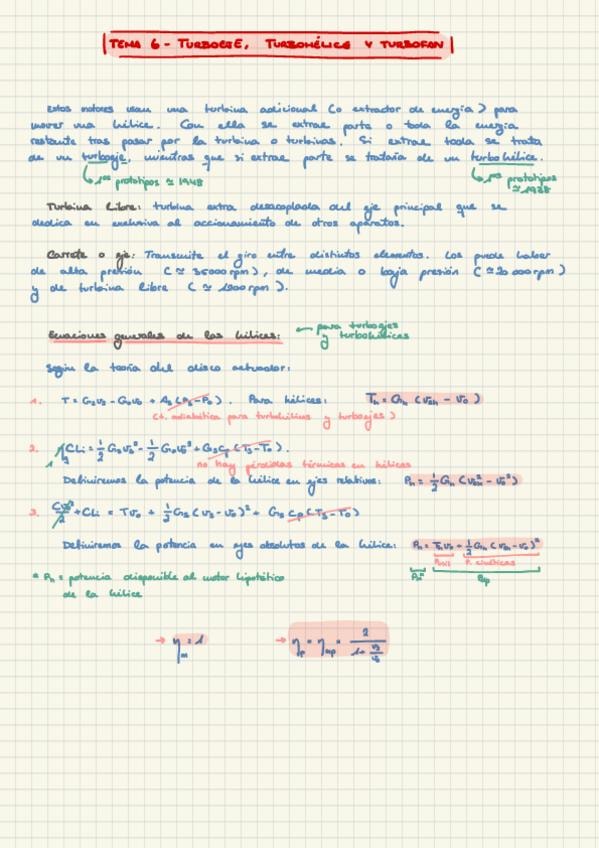 TEMA 6 - TURBOEJE, TURBOHÉLICE Y TURBOFAN
Estos motores usan una turbina adicional (o extractor de energía) para
mover una hélice. Con ella se extrae parte o toda la energía
restante tras pasar por la turbina o turbinas. Si extrae toda se trata
de un turboeje, mientras que si extrae parte se trataría de un turbohélice.
↳ 1ºs prototipos ≃ 1948
↳ 1ºs prototipos
≃ 1938
Turbina Libre: turbina extra desacoplada del eje principal que se
dedica en exclusiva al accionamiento de otros aparatos.
Carrete o eje: Transmite el giro entre distintos elementos. Los puede haber
de alta presión (≃ 35000 rpm), de media o baja presión (≃ 20 000 rpm)
y de turbina libre (≃ 1000 rpm).
Ecuaciones generales de las hélices:
← para turboejes
y turbohélices
Según la teoría del disco actuador:
1. T = G₃v₃ - G₀v₀ + A₃(P₃-P₀). Para hélices: Tₕ = Gₕ (v₃ₕ - v₀)
(t. adiabática para turbohélices y turboejes)
no hay pérdidas térmicas en hélices
Definiremos la potencia de la hélice en ejes relativos: Pₕ = ½ Gₕ (v₃ₕ² - v₀²)
Definiremos la potencia en ejes absolutos de la hélice: Pₕ = Tₕv₀ + ½ Gₕ (v₃ₕ - v₀)²
* Pₕ = potencia disponible al motor hipotético
de la hélice
→ ηₘ = 1
→ ηₚ = ηₘₚ = 2 / (1 + v₃/v₀)